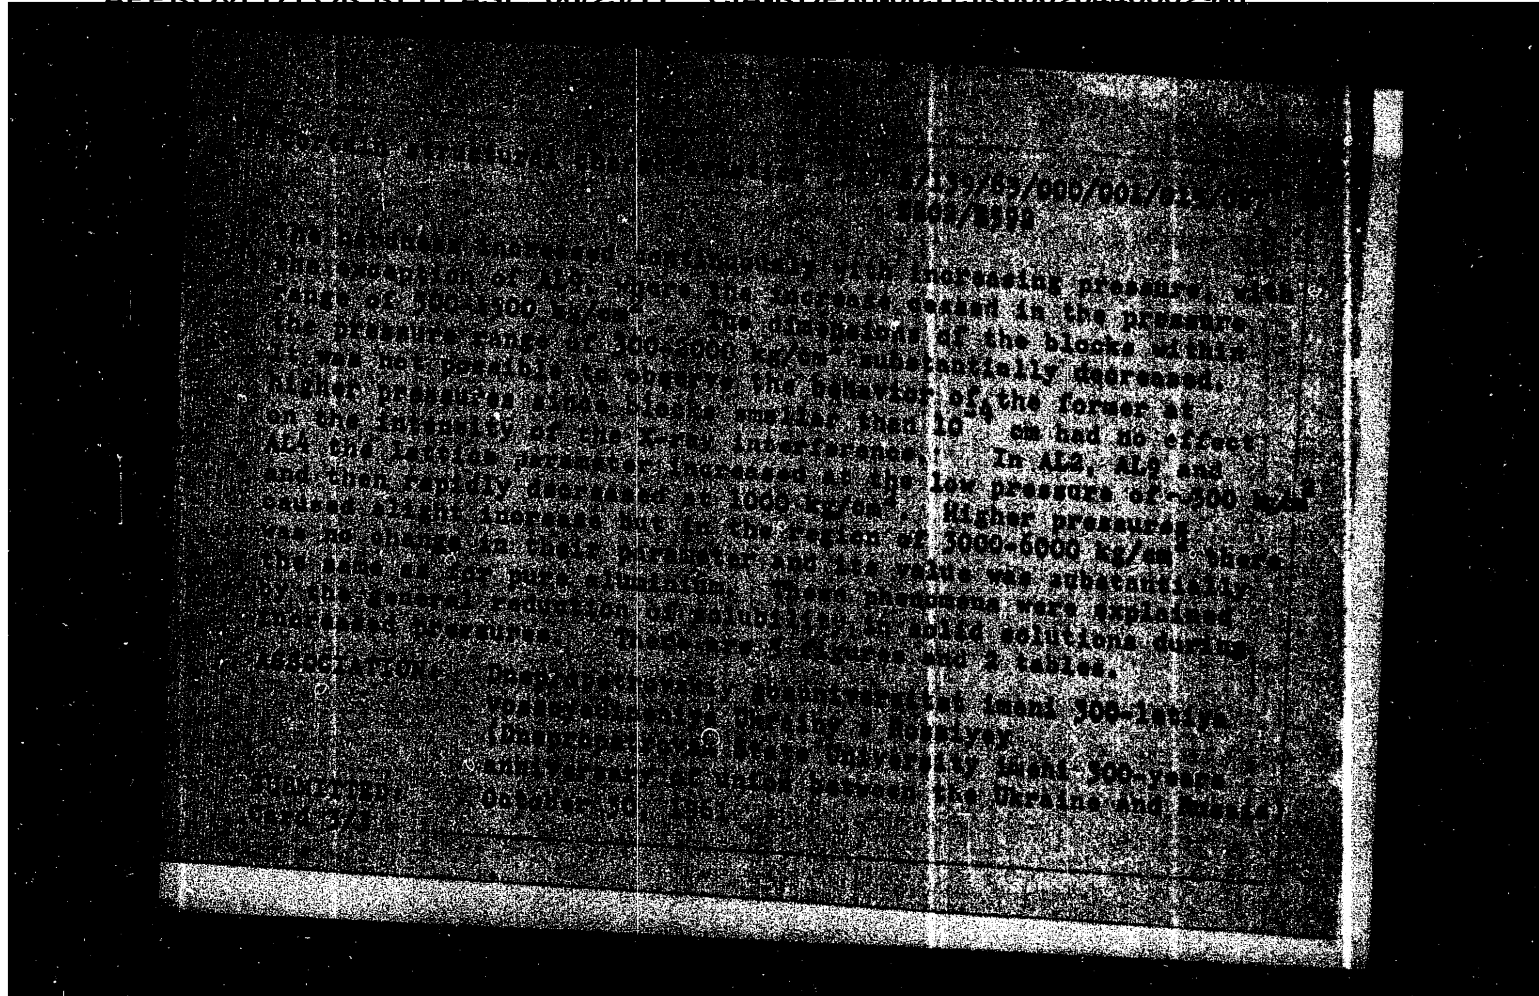 Certain structural
/139/63/000/001/013/027
E202/E592
The hardness increased continuously with increasing pressure, with
the exception of AL9, where the increase ceased in the pressure
range of kg/cm2. The dimensions of the blocks within
the pressure range of 300-6000 kg/cm2 substantially decreased.
It was not possible to observe the behavior of the former at
higher pressures since blocks smaller than 10-4 cm had no effect
on the intensity of the X-ray interference. In AL2, AL9 and
AL4 the lattice parameter increased at the low pressure of ~300 kg/cm2
and then rapidly decreased at 1000 kg/cm2. Higher pressures
caused slight increase but in the region of 3000-6000 kg/cm2 there
was no change in their parameter and its value was substantially
the same as for pure aluminium. These phenomena were explained
by the general reduction of solubility in solid solutions during
increased pressures. There are 3 figures and 2 tables.
ASSOCIATION: Dnepropetrovskiy gosuniversitet imeni 300-letiya
vossoyedineniya Ukrainy s Rossiyey
(Dnepropetrovsk State University imeni 300-years
anniversary of union between the Ukraine and Russia)
SUBMITTED: October 30, 1961
Card 3/3